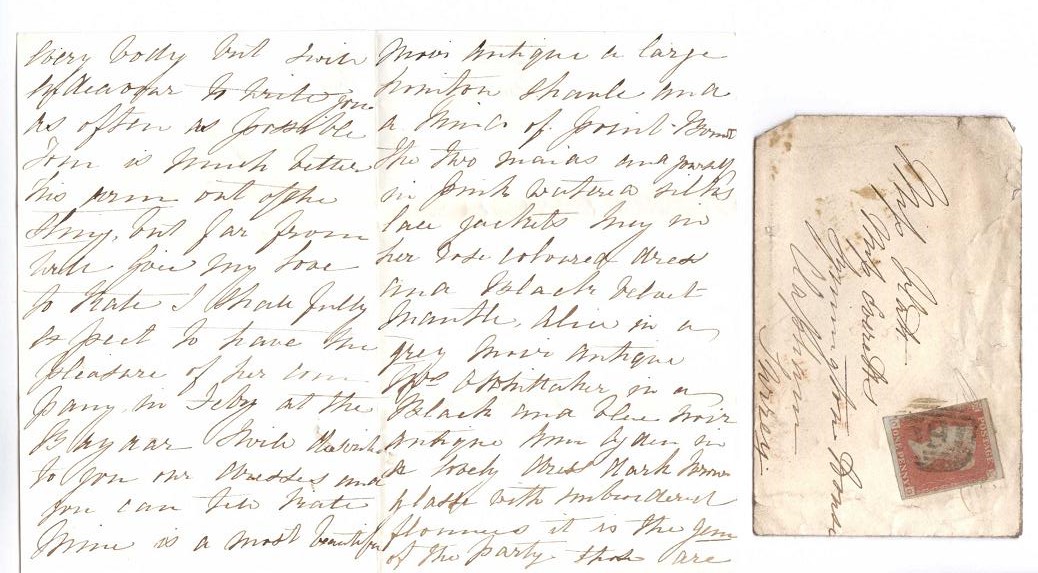 every body but will
endeavour to write you
as often as possible
Tom is much better
his arm out of the
sling, but far from
well give my love
to Kate I shall fully
expect to have the
pleasure of her com
pany in Feby at the
Bazaar I will describe
to you our dresses and
you can tell Kate
Mine is a most beautiful
Moire antique a large
honiton shawle and
a of point
the two maids and yourself
in pink watered silks
lace jackets Mey in
her rose coloured dress
and Black velvet
Mantle, Alice in a
grey moire antique
Mrs Whittaker in a
Black and blue moir
antique in
a lovely dress dark brown
with embroidered
flounces it is the gem
of the party those are
Miss Platt
Kennington House
Surrey
POSTAGE
ONE PENNY